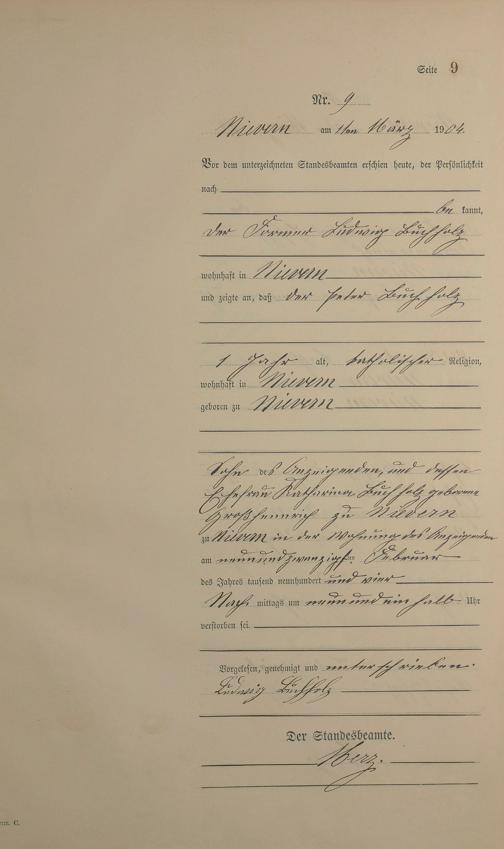 Seite 9
Nr. 9
Nievern am 1ten März 1904.
Vor dem unterzeichneten Standesbeamten erschien heute, der Persönlichkeit
nach
be kannt,
der Former Ludwig Buchholz
wohnhaft in Nievern
und zeigte an, daß der Peter Buchholz
1 Jahr alt, katholischer Religion,
wohnhaft in Nievern
geboren zu Nievern
Sohn des Anzeigenden, und dessen
Ehefrau Katharina Buchholz geborene
Großheinrich zu Nievern
zu Nievern in der Wohnung des Anzeigenden
am neunundzwanzigsten Februar
des Jahres tausend neunhundert und vier
Nach mittags um neunundeinhalb Uhr
verstorben sei.
Vorgelesen, genehmigt und unterschrieben.
Ludwig Buchholz
Der Standesbeamte.
Merz.
C.